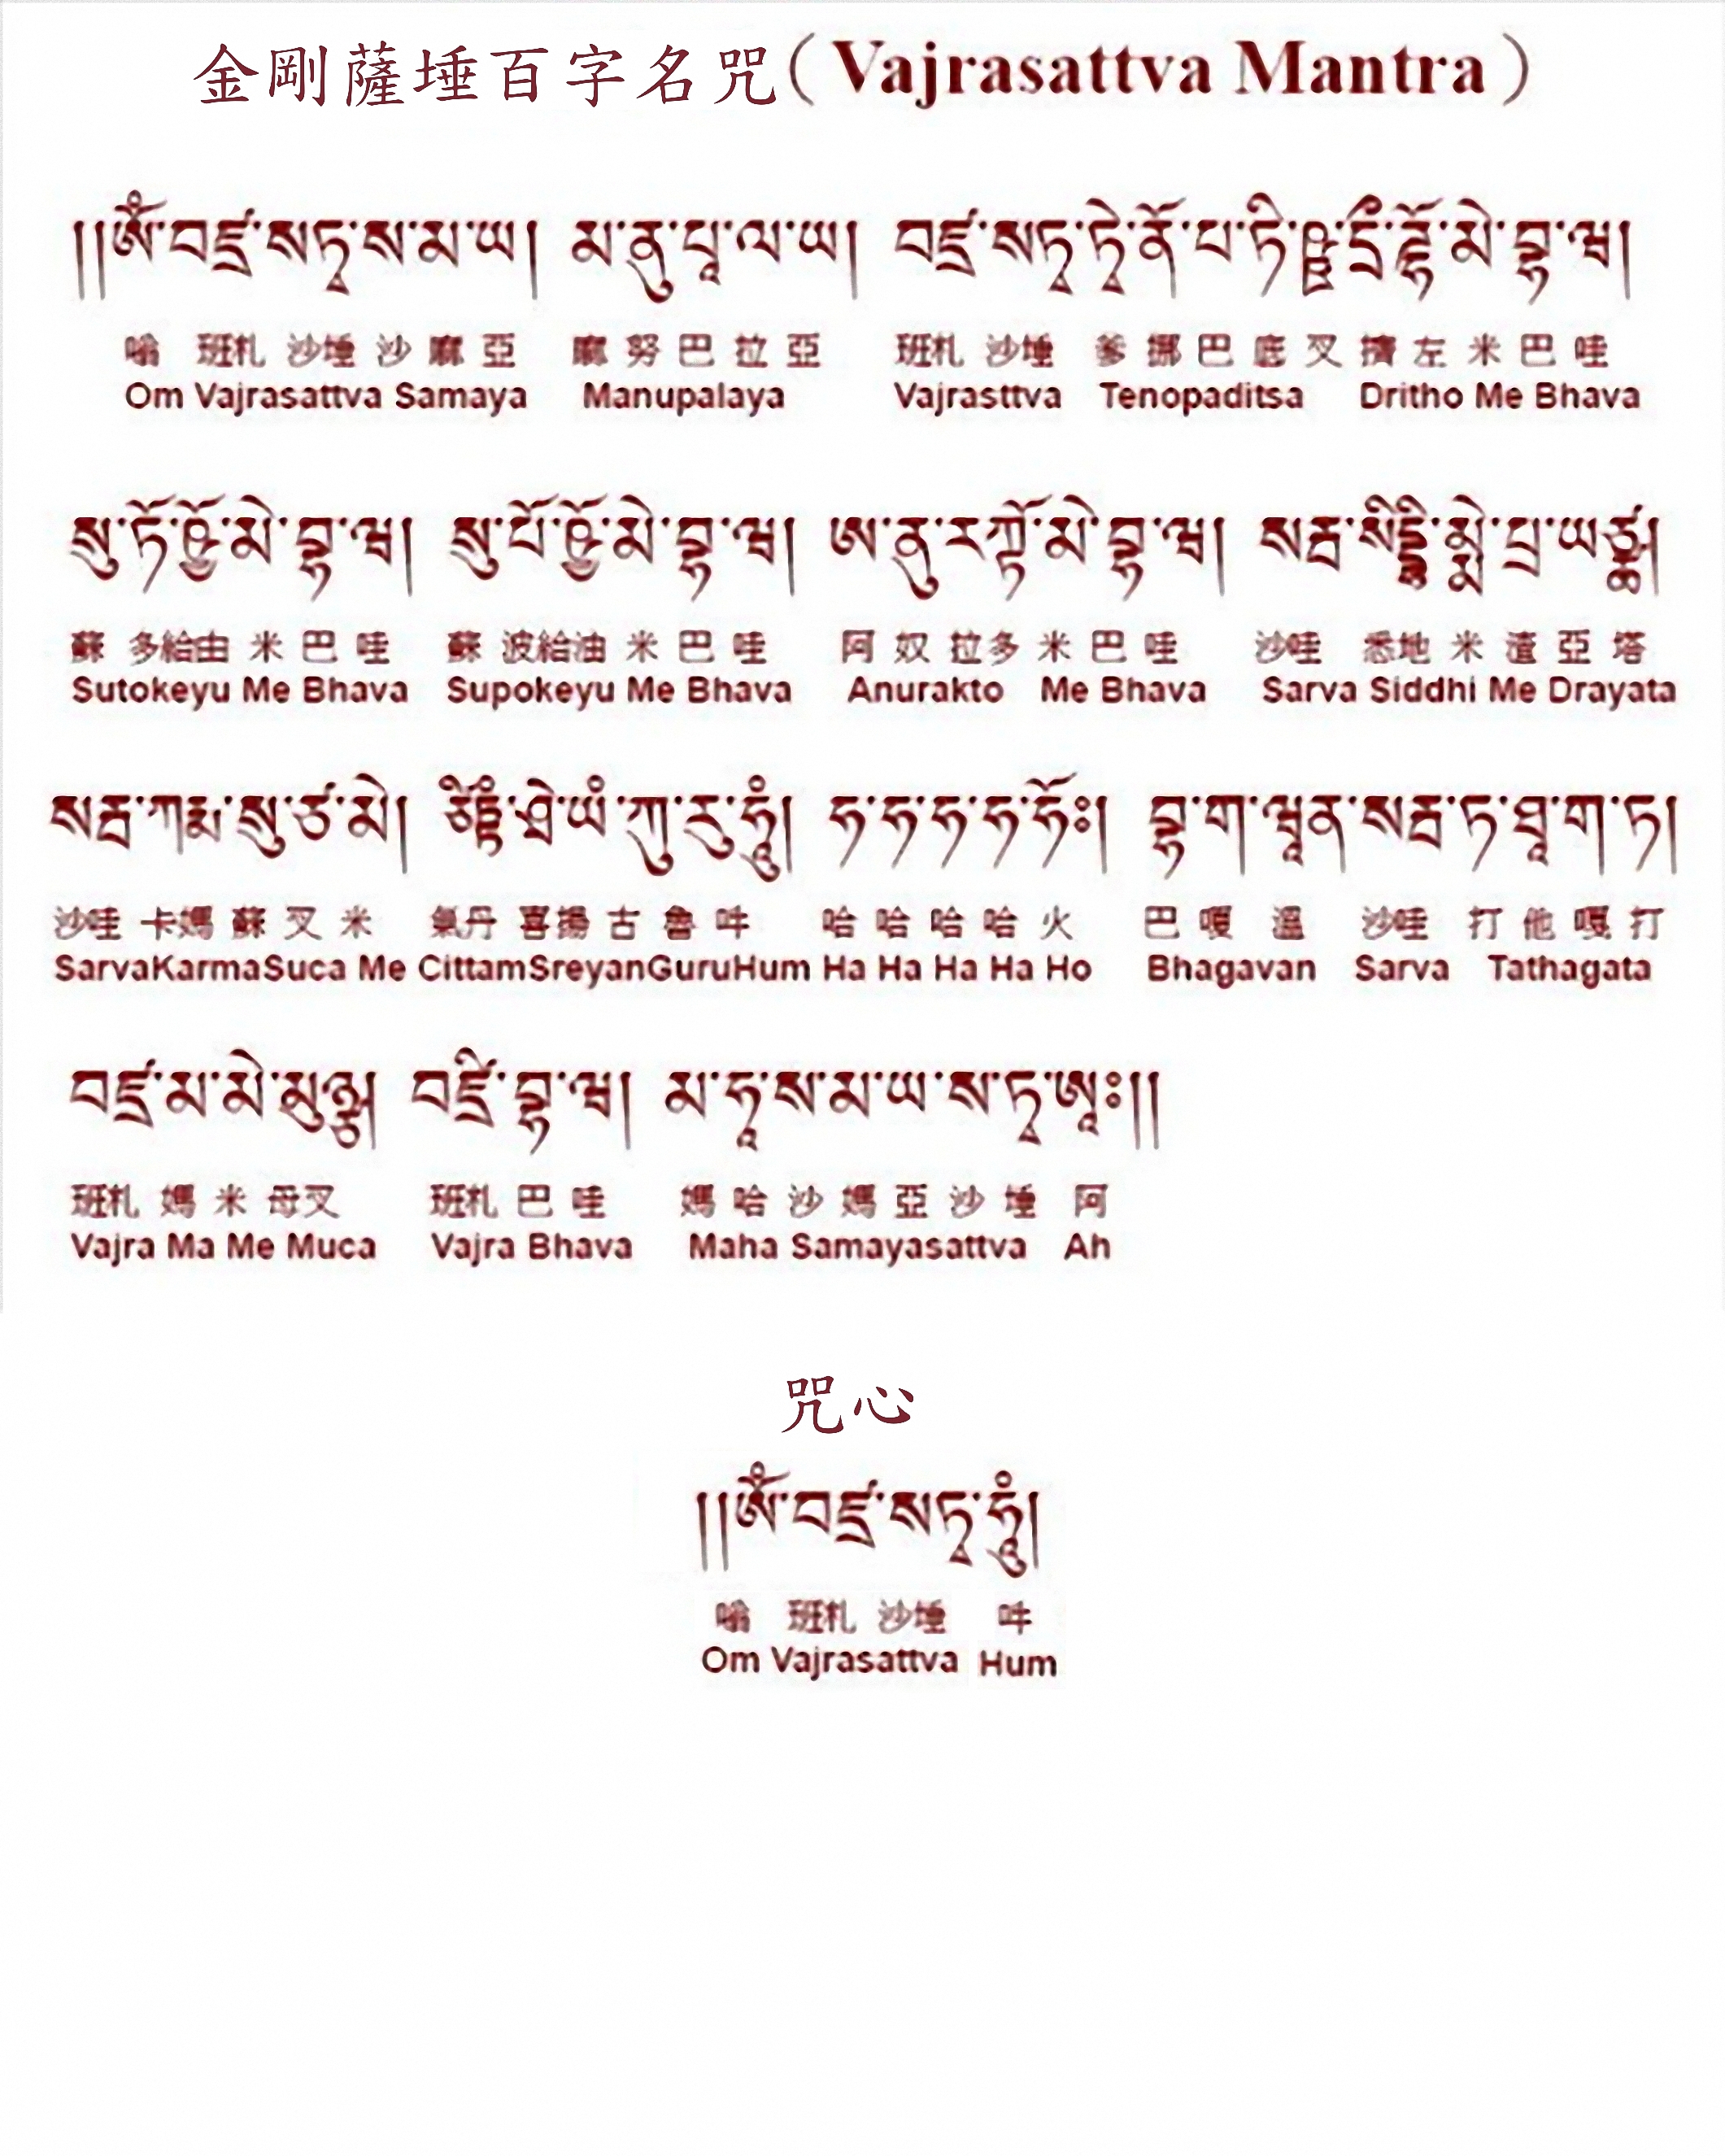 金剛薩埵百字名咒(Vajrasattva Mantra)
།།ཨོཾ་བཛྲ་སཏྭ་ས་མ་ཡ། མ་ནུ་པཱ་ལ་ཡ། བཛྲ་སཏྭ་ཏྭེ་ནོ་པ་ཏིཥྛ་དྲྀ་ཌྷོ་མེ་བྷ་ཝ།
嗡 班札 沙埵 沙 麻 亞 麻 努 巴 拉 亞 班札 沙埵 爹 挪 巴 底 叉 擠 左 米 巴 哇
Om Vajrasattva Samaya Manupalaya Vajrasttva Tenopaditsa Dritho Me Bhava
སུ་ཏོ་ཥྱོ་མེ་བྷ་ཝ། སུ་པོ་ཥྱོ་མེ་བྷ་ཝ། ཨ་ནུ་རཀྟོ་མེ་བྷ་ཝ། སརྦ་སིདྡྷི་མྨེ་པྲ་ཡཙྪ།
蘇 多給由 米 巴 哇 蘇 波給油 米 巴 哇 阿 奴 拉多 米 巴 哇 沙哇 悉地 米 渣 亞 塔
Sutokeyu Me Bhava Supokeyu Me Bhava Anurakto Me Bhava Sarva Siddhi Me Drayata
སརྦ་ཀརྨ་སུ་ཙ་མེ། ཙིཏྟཾ་ཤྲེ་ཡཾ་ཀུ་རུ་ཧཱུྃ། ཧ་ཧ་ཧ་ཧ་ཧོཿ། བྷ་ག་ཝཱན་སརྦ་ཏ་ཐཱ་ག་ཏ།
沙哇 卡媽 蘇 叉 米 氣丹 喜揚 古 魯 吽 哈 哈 哈 哈 火 巴 嘎 溫 沙哇 打 他 嘎 打
SarvaKarmaSuca Me CittamSreyanGuruHum Ha Ha Ha Ha Ho Bhagavan Sarva Tathagata
བཛྲ་མ་མེ་མུཉྩ། བཛྲི་བྷ་ཝ། མ་ཧཱ་ས་མ་ཡ་ས་ཏྭ་ཨཱཿ།།
班札 媽 米 母叉 班札 巴 哇 媽 哈 沙 媽 亞 沙 埵 阿
Vajra Ma Me Muca Vajra Bhava Maha Samayasattva Ah
咒心
།།ཨོཾ་བཛྲ་སཏྭ་ཧཱུྃ།
嗡 班札 沙埵 吽
Om Vajrasattva Hum